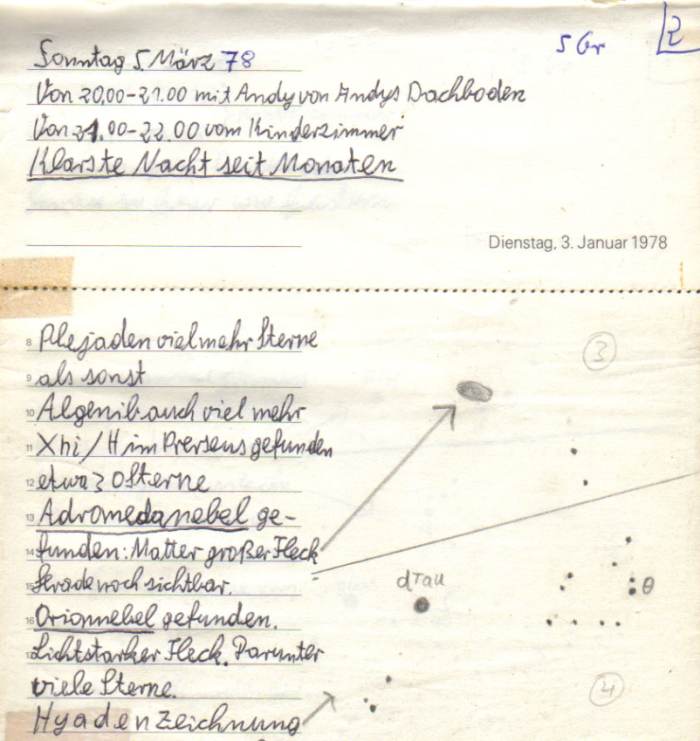 Sonntag 5. März 78
5 Gr
2
Von 20.00-21.00 mit Andy von Andys Dachboden
Von 21.00-22.00 vom Kinderzimmer
Klarste Nacht seit Monaten
Dienstag, 3. Januar 1978
8 Plejaden viel mehr Sterne
3
9 als sonst
10 Algenib auch viel mehr
11 Xhi/H im Prerseus gefunden
12 etwa 30 Sterne
13 Adromedanebel ge-
14 funden: Matter großer Fleck
15 Grade noch sichtbar.
dTau
θ
16 Orionnebel gefunden.
Lichtstarker Fleck. Darunter
viele Sterne.
4
Hyaden Zeichnung